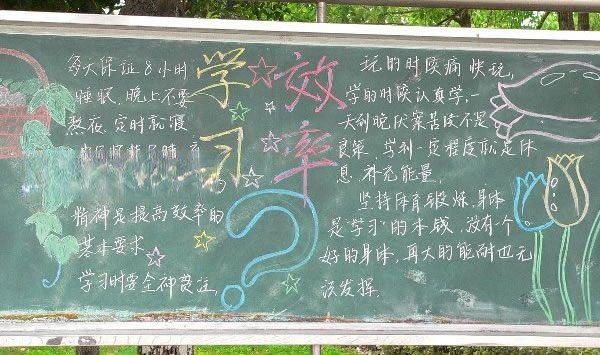 每天保证8小时
睡眠，晚上不要
熬夜，定时就寝
精神是提高效率的
基本要求
学习时要全神贯注
学习
效率
?
玩的时候痛快玩，
学的时候认真学，一
天到晚伏案苦读不是
良策，学到一定程度就是休
息、补充能量，
坚持体育锻炼，身体
是“学习”的本钱，没有个
好的身体，再大的能耐也无
法发挥.